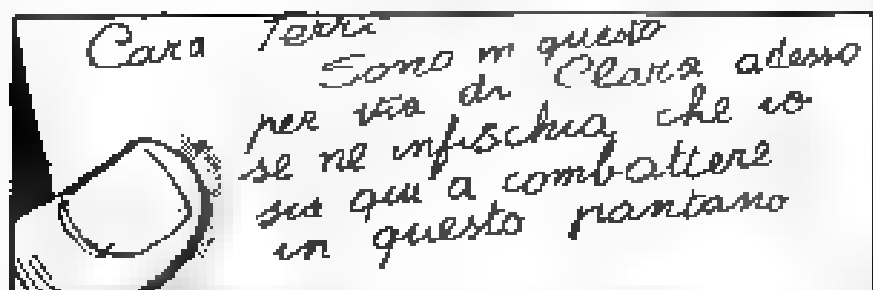 Cara Terri
Sono in questo
per via di Clara adesso
se ne infischia che io
sia qui a combattere
in questo pantano